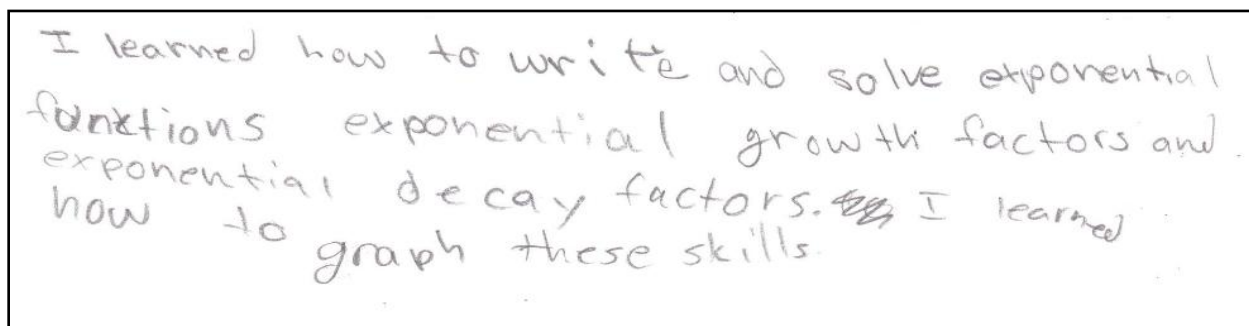 I learned how to write and solve exponential
funxtions exponential growth factors and
exponential decay factors. I learned
how to graph these skills.